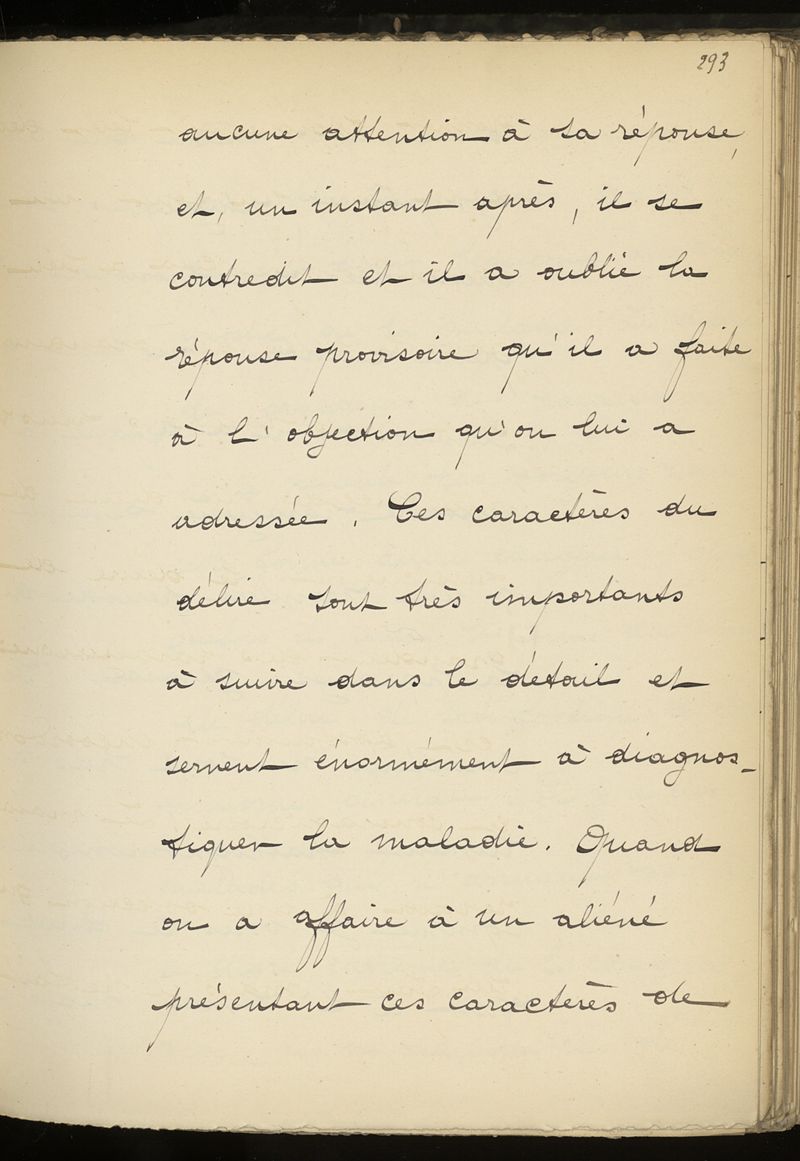 293
aucune attention à sa réponse,
et, un instant après, il se
contredit et il a oublié la
réponse provisoire qu'il a faite
à l'objection qu'on lui a
adressée. Ces caractères du
délire sont très importants
à suivre dans le détail et
servent énormément à diagnos-
tiquer la maladie. Quand
on a affaire à un aliéné
présentant ces caractères de